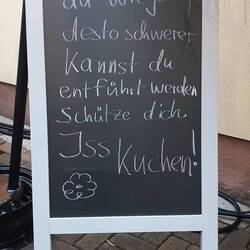 du
desto schwerer
Kannst du
entführt werden
Schütze dich
Iss Kuchen!